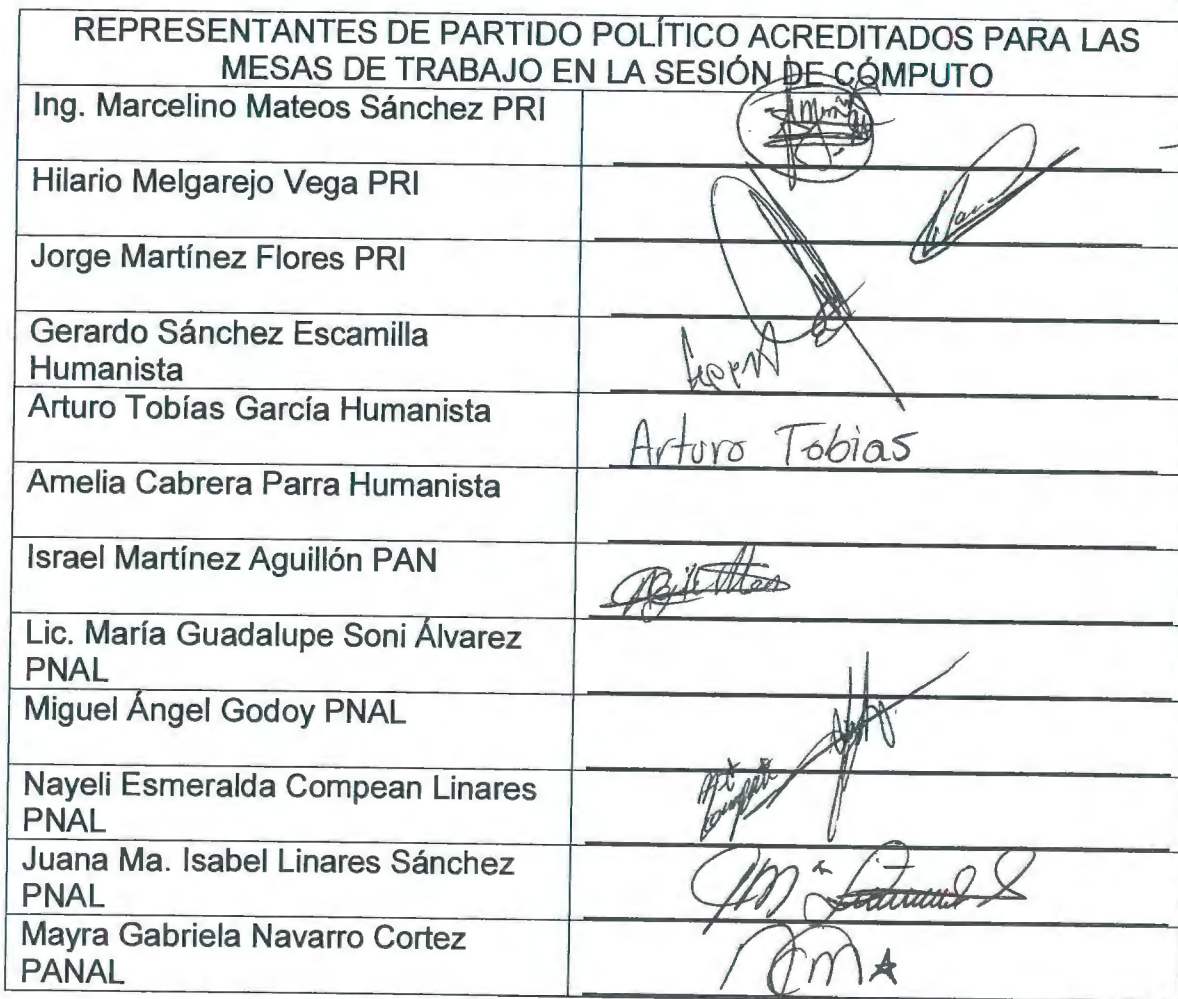 REPRESENTANTES DE PARTIDO POLÍTICO ACREDITADOS PARA LAS
MESAS DE TRABAJO EN LA SESIÓN DE CÓMPUTO
Ing. Marcelino Mateos Sánchez PRI
Hilario Melgarejo Vega PRI
Jorge Martínez Flores PRI
Gerardo Sánchez Escamilla
Humanista
Arturo Tobías García Humanista
Arturo Tobias
Amelia Cabrera Parra Humanista
Israel Martínez Aguillón PAN
Lic. María Guadalupe Soni Álvarez
PNAL
Miguel Ángel Godoy PNAL
Nayeli Esmeralda Compean Linares
PNAL
Juana Ma. Isabel Linares Sánchez
PNAL
Mayra Gabriela Navarro Cortez
PANAL